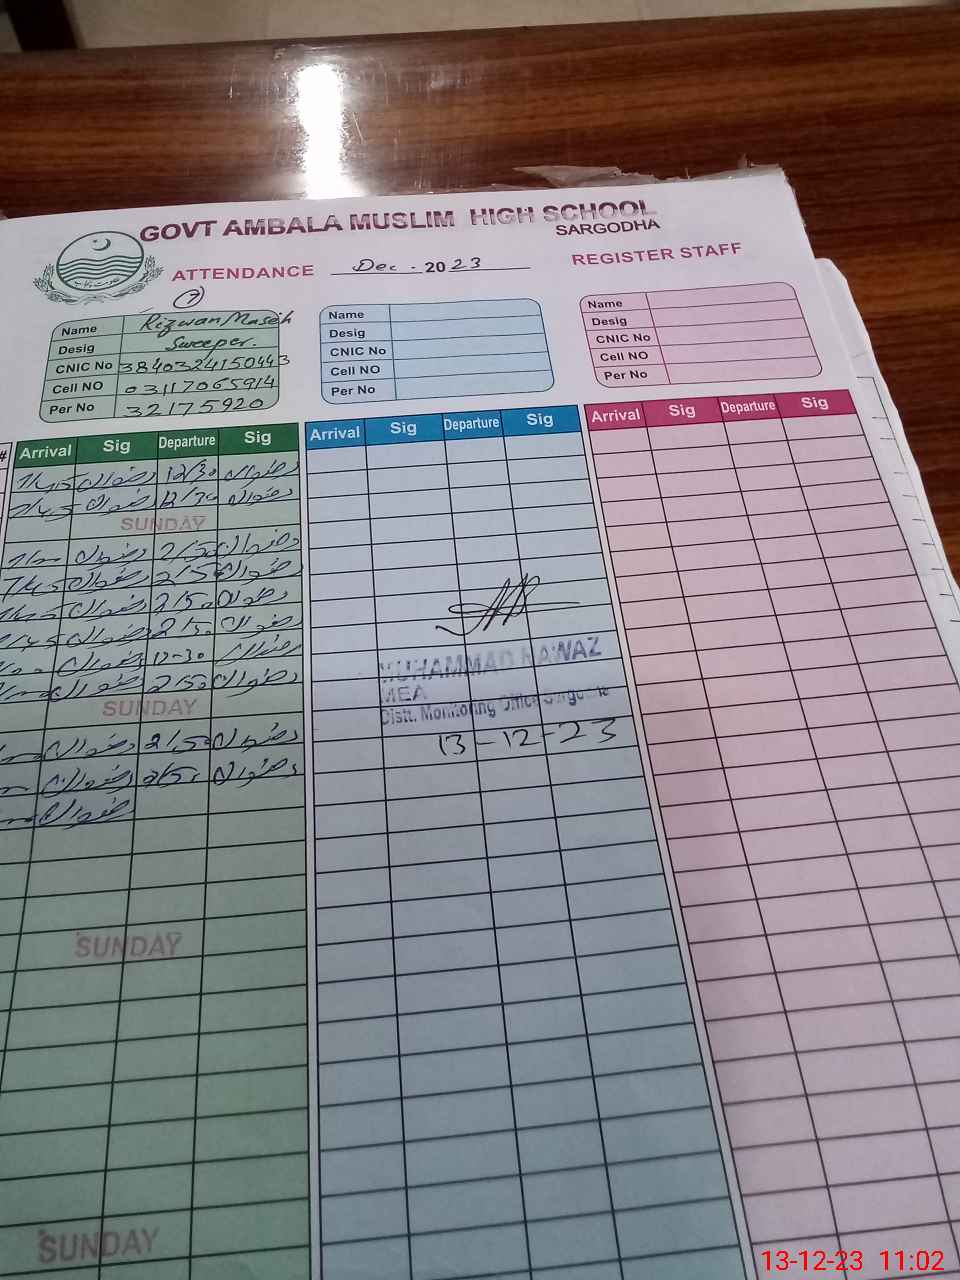 GOVT AMBALA MUSLIM HIGH SCHOOL
SARGODHA
ATTENDANCE Dec. 2023 REGISTER STAFF
7
Name Rizwan Maseh
Desig Sweeper.
CNIC No 3840324150443
Cell NO 03117065914
Per No 32175920
Name
Desig
CNIC No
Cell NO
Per No
Name
Desig
CNIC No
Cell NO
Per No
# Arrival Sig Departure Sig Arrival Sig Departure Sig Arrival Sig Departure Sig
7/45 رضوان 12/30 رضوان
7/45 رضوان 12/30 رضوان
SUNDAY
رضوان 2/50 رضوان
7/45 رضوان 2/50 رضوان
7/45 رضوان 2/50 رضوان
7/45 رضوان 2/50 رضوان
رضوان 12-30 رضوان
رضوان 2/50 رضوان
SUNDAY
رضوان 2/50 رضوان
رضوان 2/50 رضوان
رضوان
MUHAMMAD NAWAZ
MEA
Distt. Monitoring Office Sargodha
13-12-23
SUNDAY
SUNDAY
13-12-23 11:02